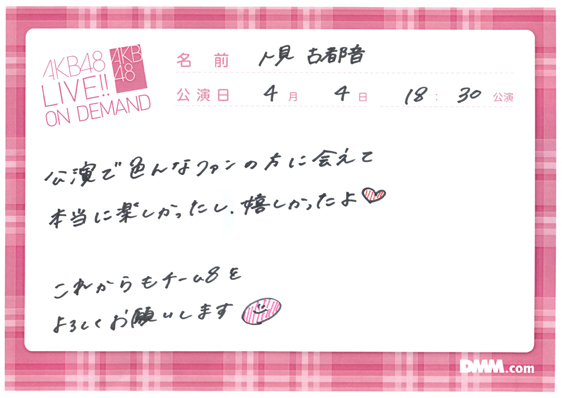 AKB48
LIVE!!
ON DEMAND
AKB
48
名前 人見 古都音
公演日 4月 4日 18:30 公演
公演で色んなファンの方に会えて
本当に楽しかったし、嬉しかったよ
これからもチーム8を
よろしくお願いします
DMM.com